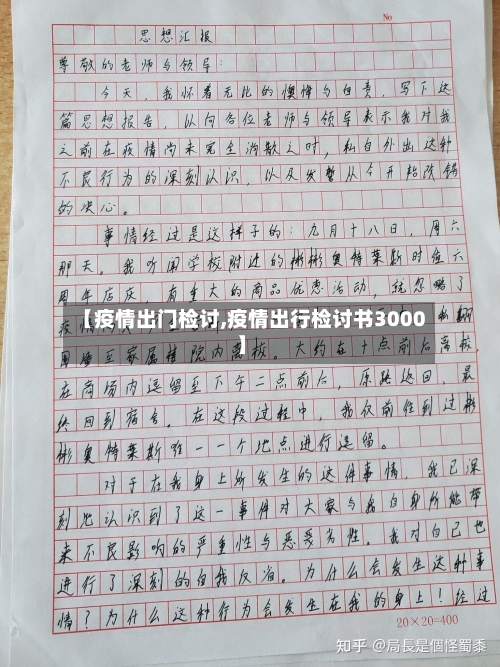 No
思想汇报
尊敬的老师与领导：
今天，我怀着无比的懊悔与自责，写下这
篇思想报告，以向各位老师与领导表示我对我
之前在疫情尚未完全消散之时，私自外出这种
不良行为的深刻认识，以及发誓从今开始改错
的决心。
事情经过是这样子的：九月十八日，周六
那天。我听闻学校附近的彬彬奥特莱斯时值六
周年店庆，有重大的商品优惠活动，就忽略了
【疫情出门检讨,疫情出行检讨书3000
】
至家属楼院内离校。大约在十点前后离校，
在商场内逗留至下午二点前后，原路返回，最
终回到宿舍。在这段过程中，我仅前往到过彬
彬奥特莱斯唯一一个地点进行逗留。
对于在我身上所发生的这件事情，我已深
刻地认识到了这一事件对大家与我自身所能带
来不良影响的严重性与恶劣性。我对自己也
进行了深刻的自我反省。为什么会发生这种事
情？为什么这种行为会发生在我的身上！经过
20×20=400
知乎 @局長是個怪蜀黍